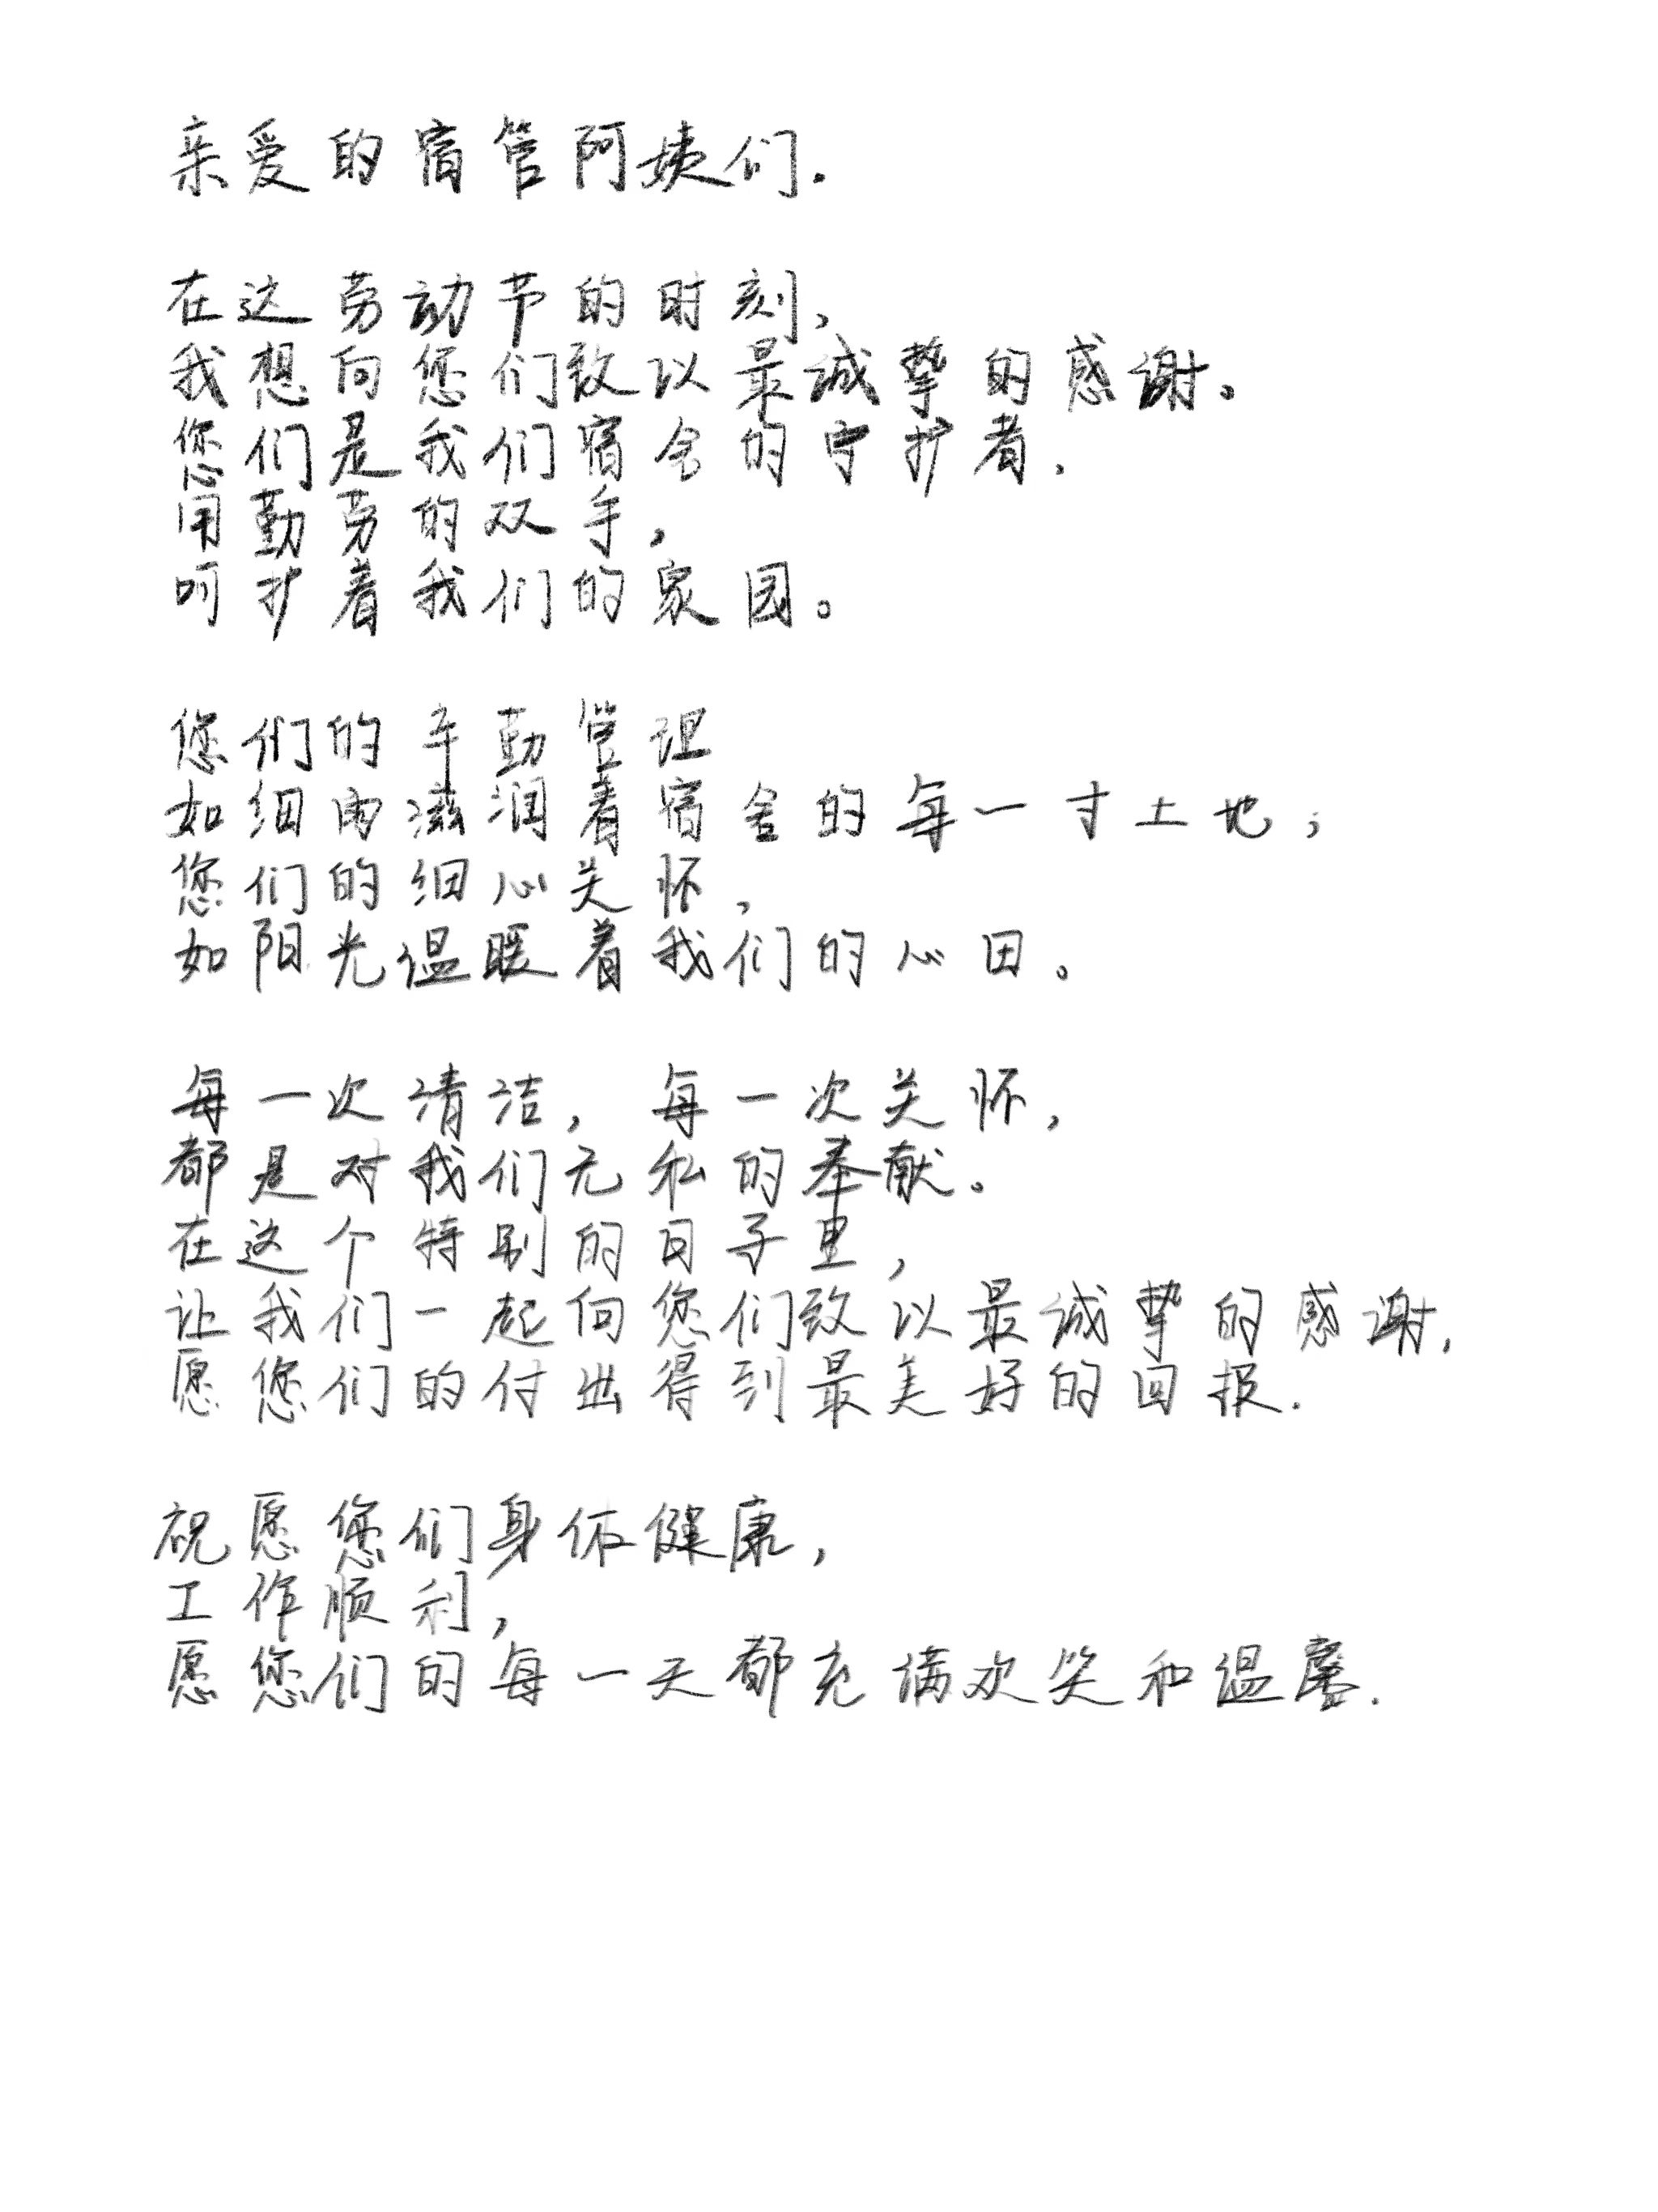 亲爱的宿管阿姨们.
在这劳动节的时刻,
我想向您们致以最诚挚的感谢。
您们是我们宿舍的守护者,
用勤劳的双手,
呵护着我们的家园。
您们的辛勤管理
如细雨滋润着宿舍的每一寸土地;
您们的细心关怀,
如阳光温暖着我们的心田。
每一次清洁,每一次关怀,
都是对我们无私的奉献。
在这个特别的日子里,
让我们一起向您们致以最诚挚的感谢,
愿您们的付出得到最美好的回报.
祝愿您们身体健康,
工作顺利,
愿您们的每一天都充满欢笑和温馨.